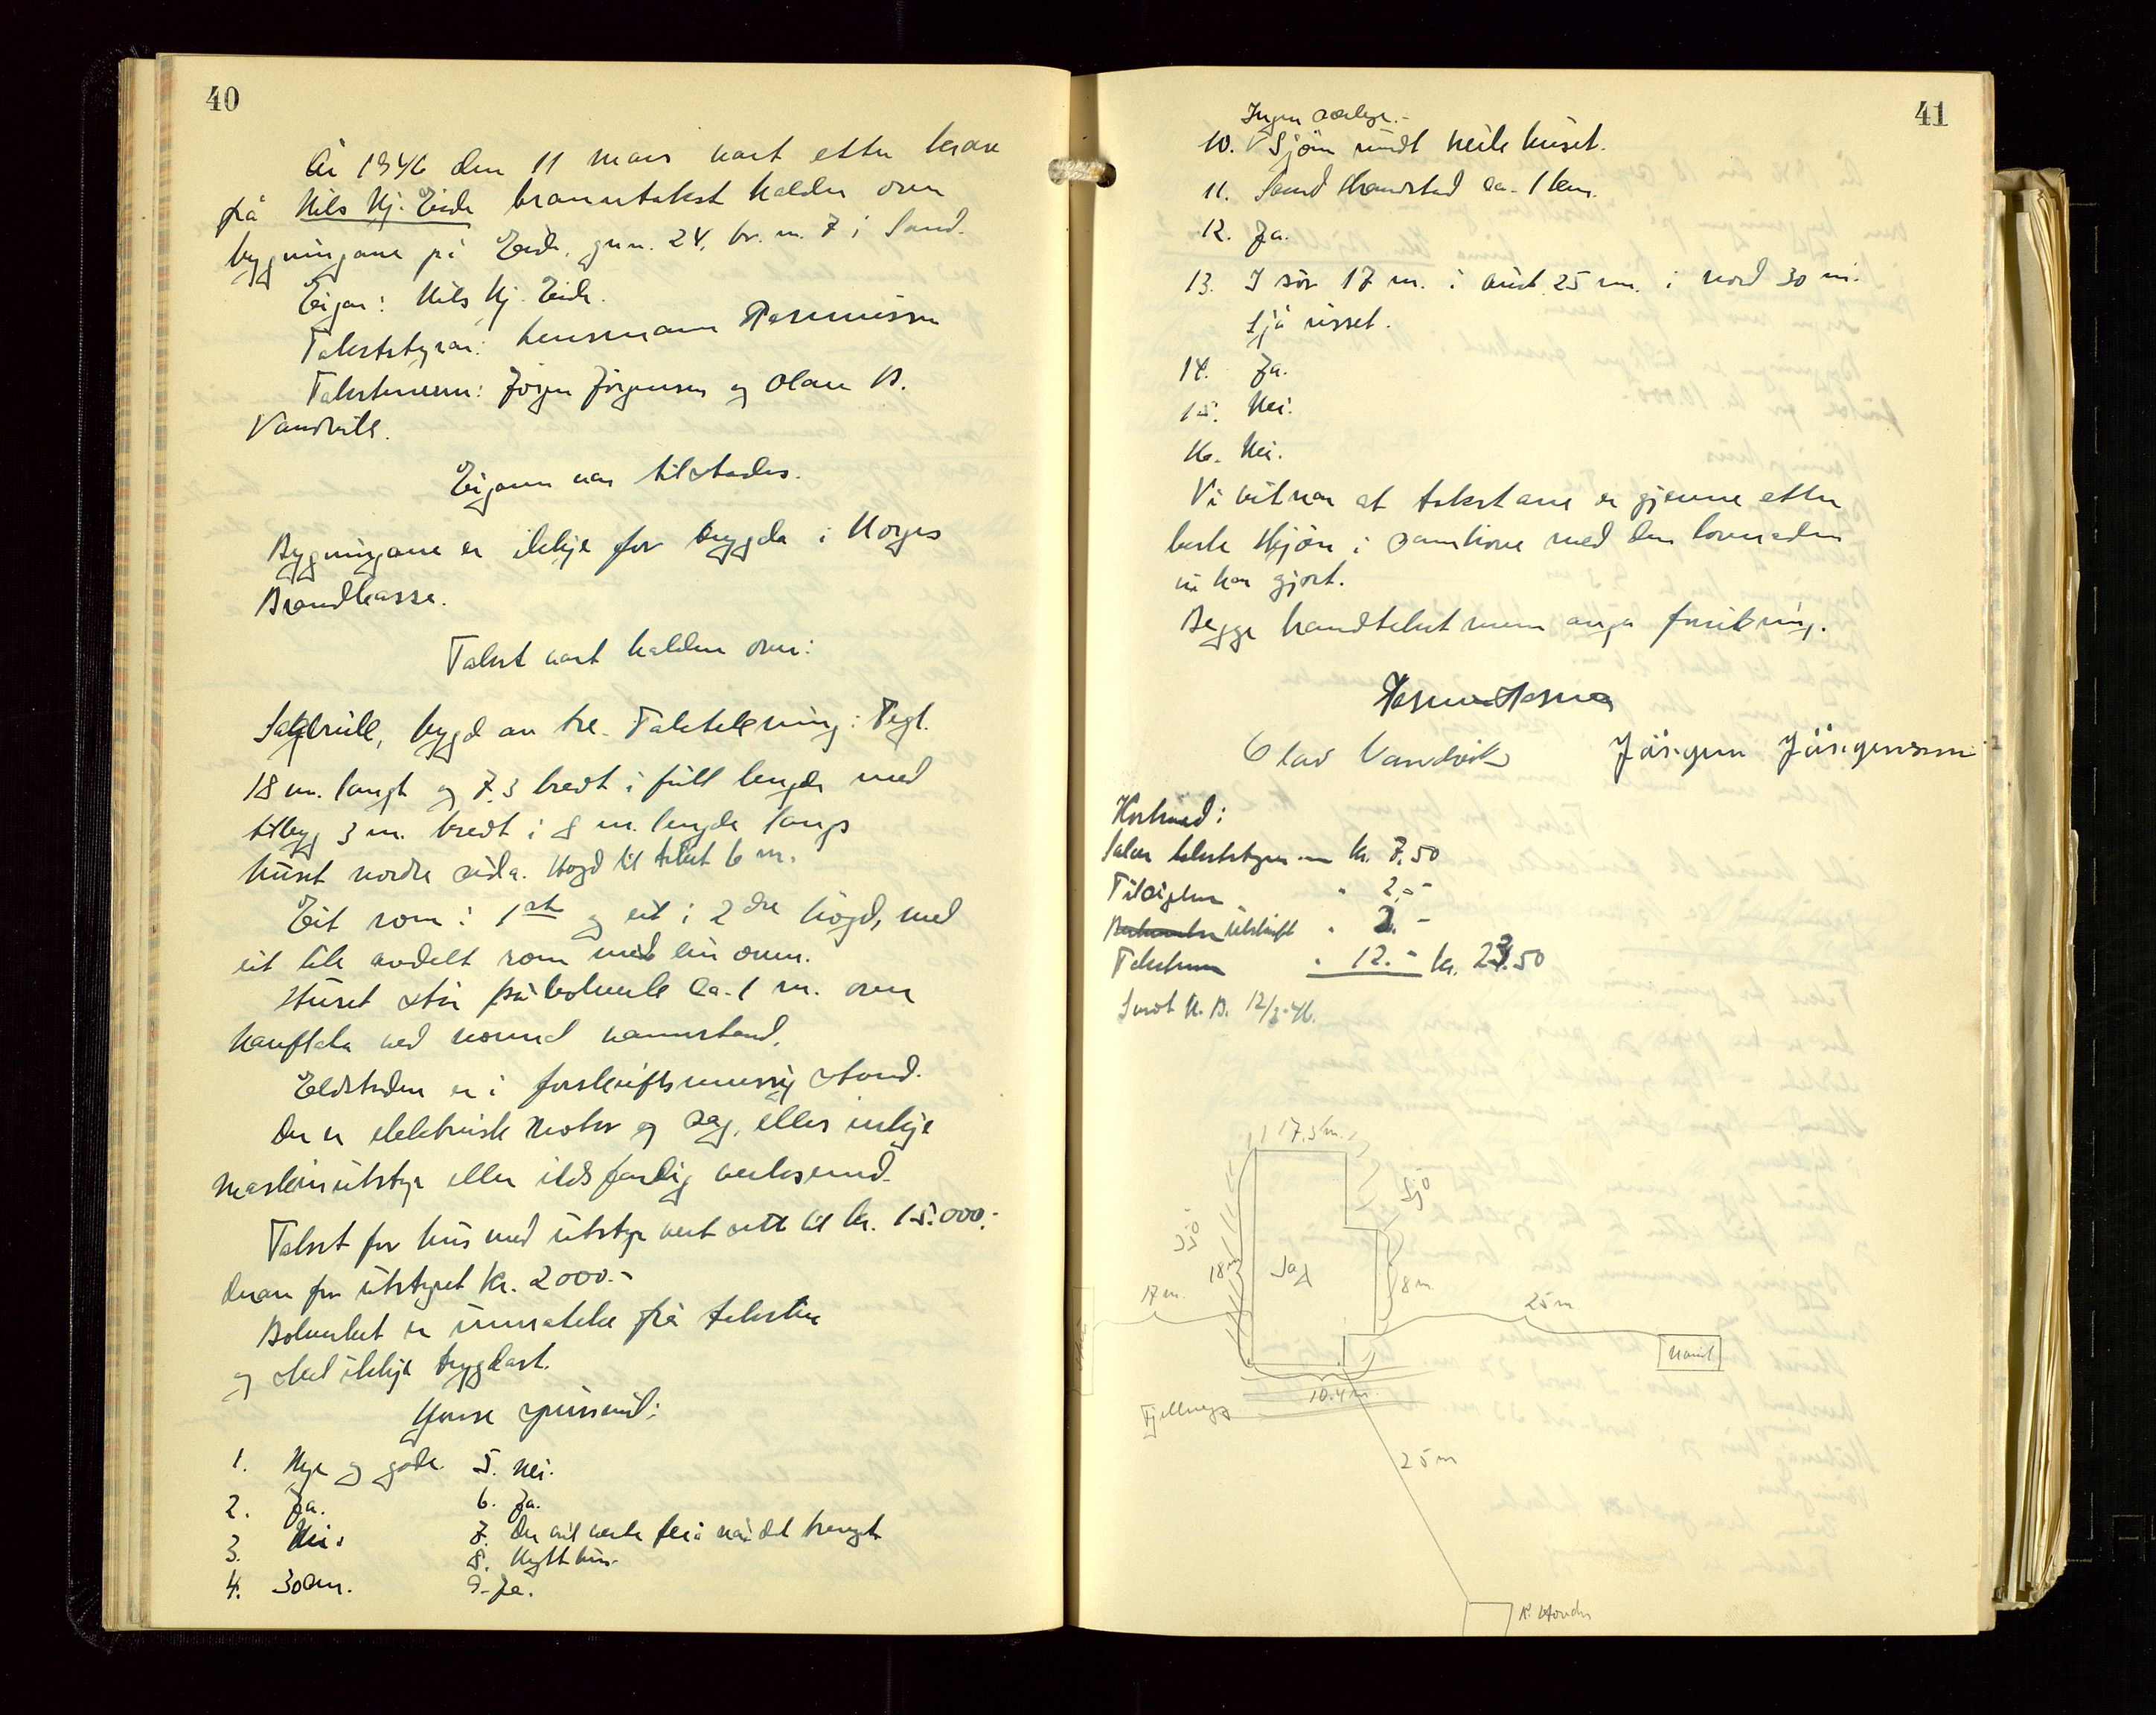 40
År 1946 den 11 mars vart etter krav
frå Nils Hj. Eide branntakst halden over
bygningane på Eide, gnr. 24, br. nr. 7 i Sand.
Eigar: Nils Hj. Eide.
Takststyrar: lensmann Rasmussen
Takstmenn: Jörgen Jörgensen og Olav B.
Vandvik.
Eigaren var tilstades.
Bygningane er ikkje før trygda i Norges
Brandkasse.
Takst vart halden over:
Sagbruk, bygd av tre. Taktekning: Tegl.
18 m. langt og 7.3 bredt i full lengde med
tilbygg 3 m. bredt i 8 m. lengde langs
huset nordre sida. Högd til taket 6 m.
Eit rom i 1ste og eit i 2dre högd, med
eit lite avdelt rom med ein ovn.
Huset står på bolverk ca. 1 m. over
havflata ved normal vannstand.
Eldstaden er i forskriftsmessig stand.
Der er elektrisk motor og sag, elles inkje
maskinutstyr eller ildsfarlig verksemd.
Takst for hus med utstyr vert sett til kr. 15.000.-
derav for utstyret kr. 2000.-
Bolverket er unnateke frå taksten
og skal ikkje trygdast.
Ymse spursmål:
1. Nye og gode 5. Nei.
2. Ja. 6. Ja.
3. Nei. 7. Der vil verte feia når det trengst
4. 30 cm. 8. Nytt hus.
9. Ja.
41
Ingen særlege.-
10. Sjöen rundt heile huset.
11. Sand Strandstad ca. 1 km.
12. Ja.
13. I sör 17 m. i aust 25 m. i nord 30 m.
Sjå risset.
14. Ja.
15. Nei.
16. Nei.
Vi vitnar at takstane er gjevne etter
beste skjön i samhöve med den lovnaden
vi har gjort.
Begge brandtakstmenn avga forsikring.
Olav Vandvik Jörgen Jörgensen
Kostnad:
Salær takststyraren kr. 7.50
Tilsigelse " 2.-
Utskrift " 2.-
Takstmenn " 12.- kr. 23.50
Sendt N. B. 12/3-46.
17.3 m.
Sjö
Sjö
18 m
Sag
8 m
17 m.
25 m
Naust
10.4 m.
Fjellvegg
25 m